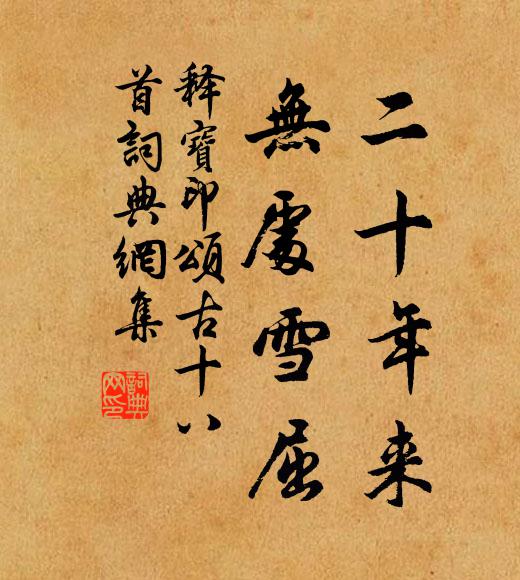 二十年来
無處雪屈
释寶印頌古十八
首詞典網集
詞典
网印